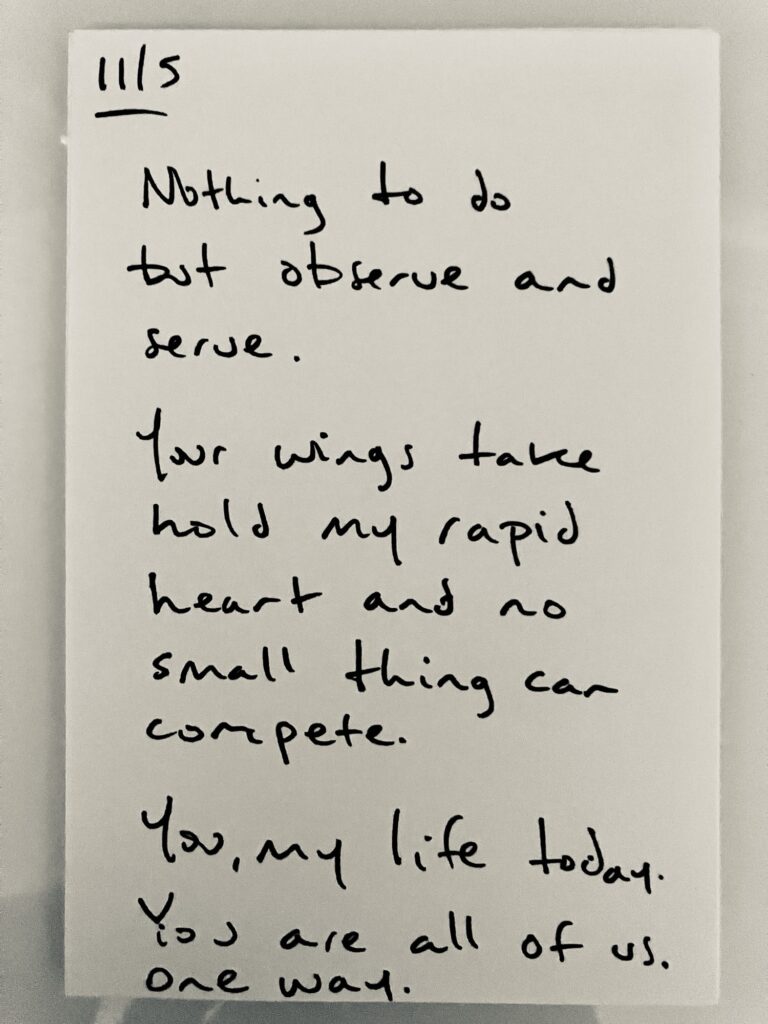 11/5
Nothing to do
but observe and
serve.
Your wings take
hold my rapid
heart and no
small thing can
compete.
You, my life today.
You are all of us.
one way.